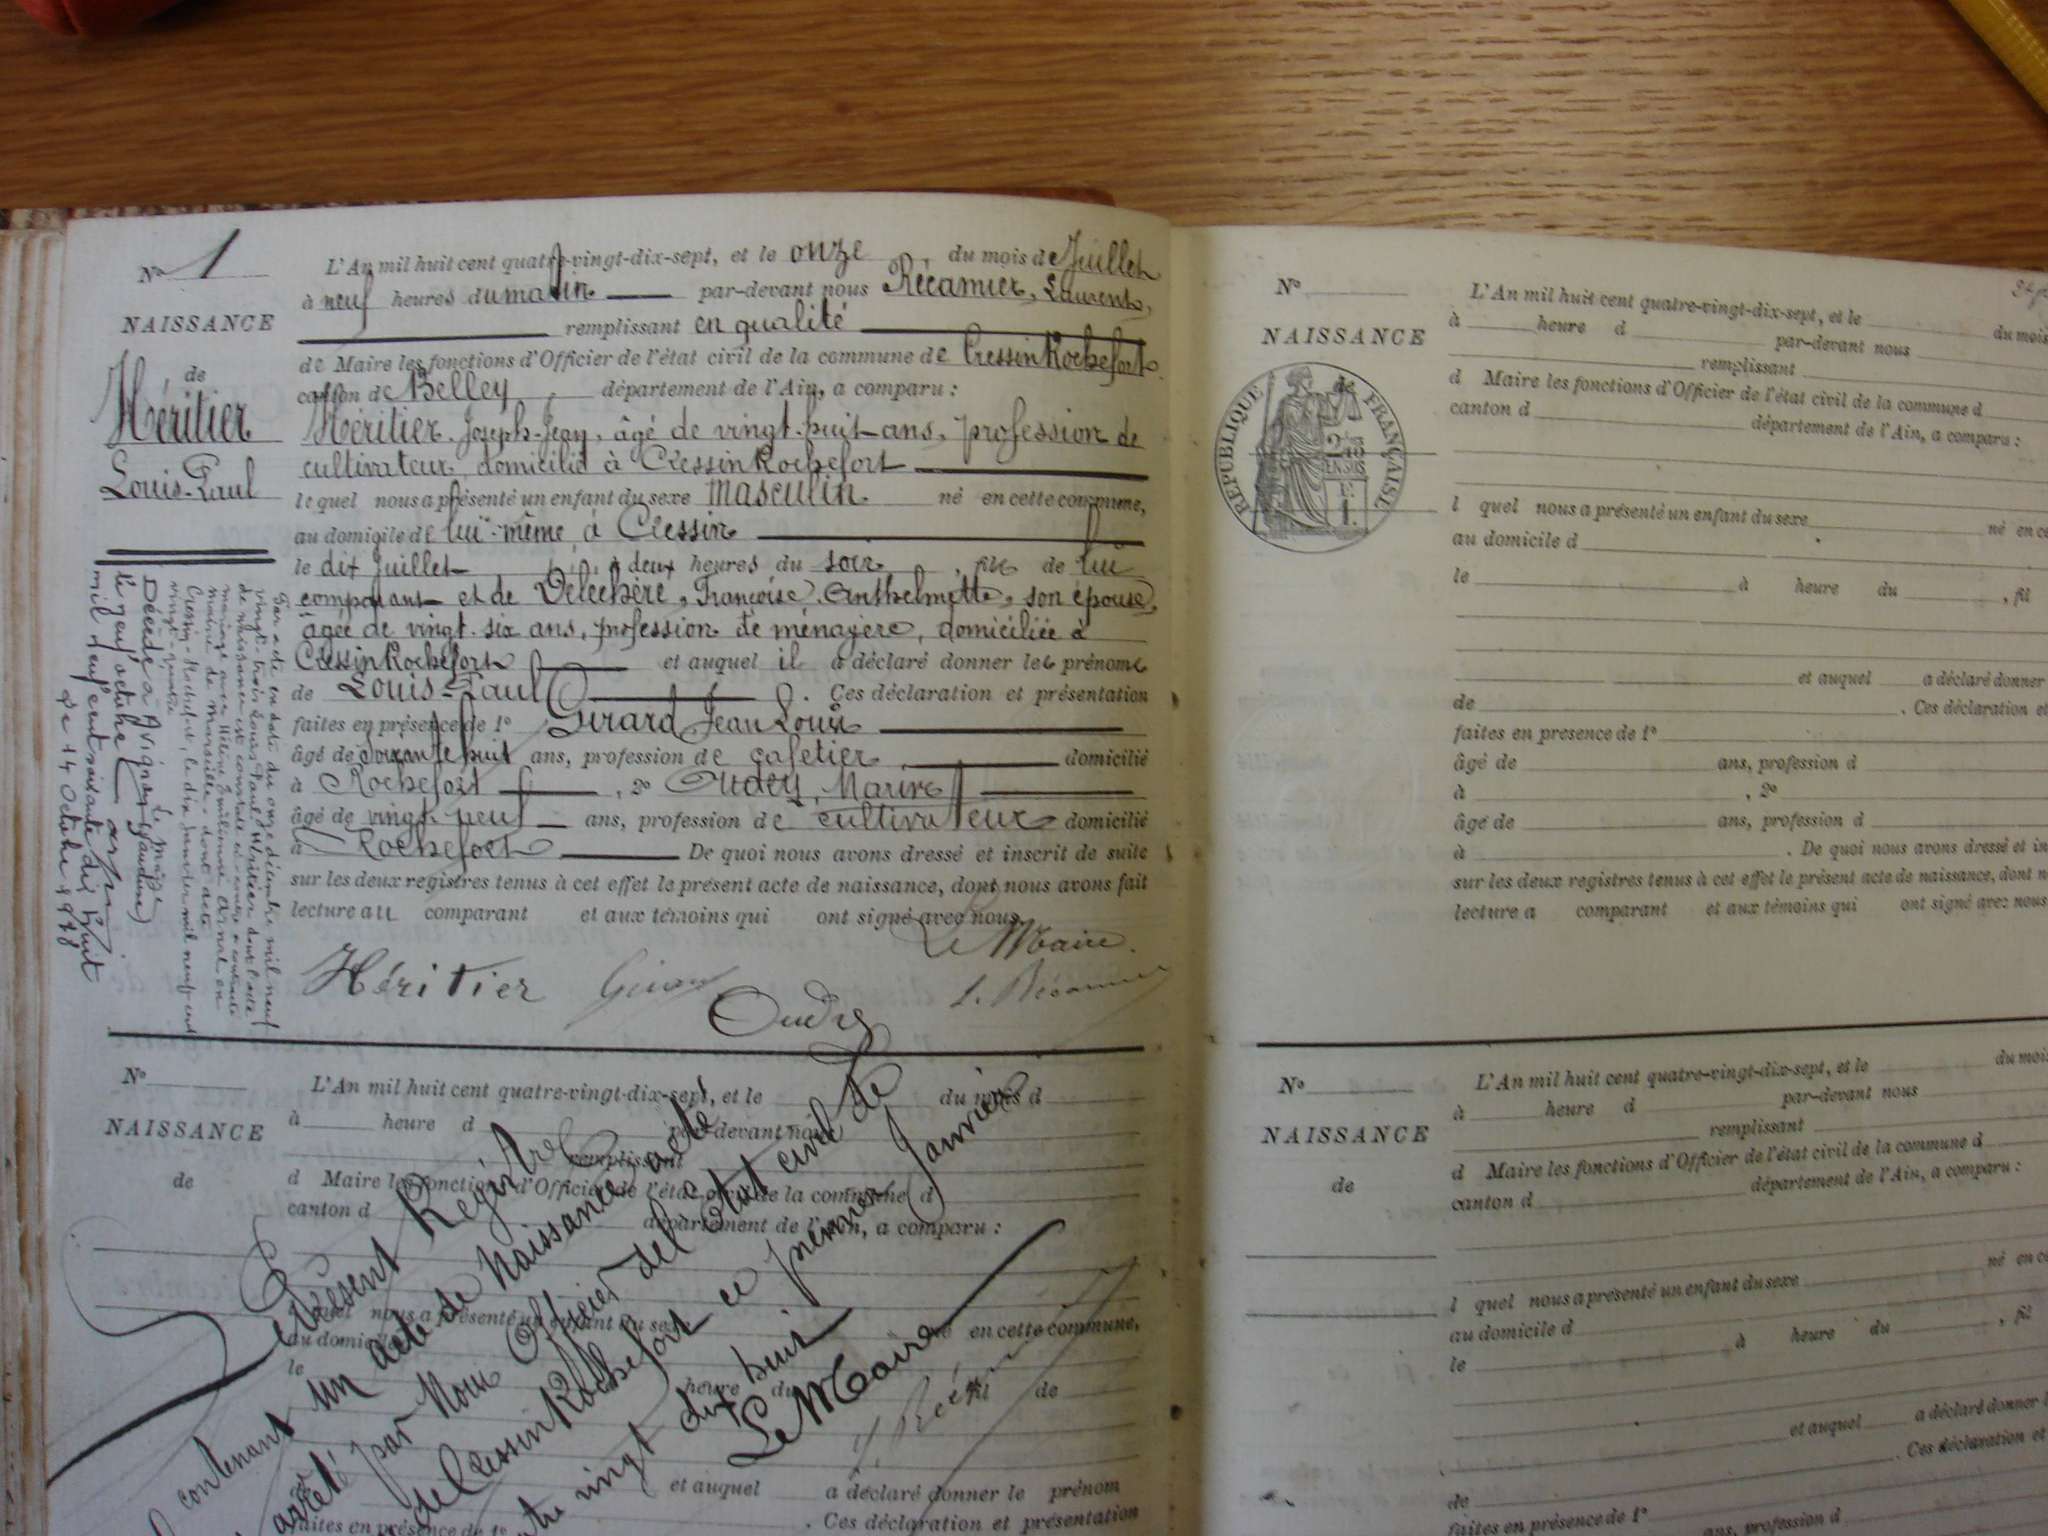 No 1
NAISSANCE
de
Héritier
Louis-Paul
L'An mil huit cent quatre-vingt-dix-sept, et le onze, du mois de Juillet
à neuf heures du matin par-devant nous Récamier, Laurent,
remplissant en qualité
de Maire les fonctions d'Officier de l'état civil de la commune de Cressin Rochefort
canton de Belley, département de l'Ain, a comparu :
Héritier Joseph-Jean, âgé de vingt-huit ans, profession de
cultivateur domicilié à Cressin Rochefort
le quel nous a présenté un enfant du sexe masculin né en cette commune,
au domicile de lui-même à Cressin
le dix Juillet, à deux heures du soir, fils de lui
comparant et de Françoise Anthelmette, son épouse,
âgée de vingt-six ans, profession de ménagère, domiciliée à
Cressin Rochefort et auquel il a déclaré donner les prénoms
de Louis-Paul. Ces déclaration et présentation
faites en présence de 1º Girard Jean Louis
âgé de huit ans, profession de cafetier, domicilié
à Rochefort, 2º Oudry, Marius
âgé de vingt-neuf ans, profession de cultivateur domicilié
à Rochefort De quoi nous avons dressé et inscrit de suite
sur les deux registres tenus à cet effet le présent acte de naissance, dont nous avons fait
lecture au comparant et aux témoins qui ont signé avec nous
Le Maire.
Héritier Girard Oudry L. Récamier
Par acte en date du onze décembre mil neuf
vingt-trois Louis Paul Héritier dont l'acte
de naissance est ci-contre a contracté
mariage avec Hélène Emilienne en
mairie de Marseille dont acte
Cressin-Rochefort, le dix Janvier mil neuf cent
vingt-quatre
Le Maire
Décédé à Avignon (Vaucluse)
le neuf octobre
mil neuf cent soixante dix huit
le 14 Octobre 1978
No
NAISSANCE
de
L'An mil huit cent quatre-vingt-dix-sept, et le du mois d
à heure d par-devant nous
remplissant
d Maire les fonctions d'Officier de l'état civil de la commune d
canton d département de l'Ain, a comparu :
quel nous a présenté un enfant du sexe né en cette commune,
au domicile
le heure du fil de
et auquel a déclaré donner le prénom
de . Ces déclaration et présentation
faites en présence de 1º
Le Présent Registre
contenant un acte de Naissance, a été
arrêté par Nous Officier de l'état civil de
de Cressin Rochefort ce premier Janvier
vingt dix huit
Le Maire
L. Récamier
No
NAISSANCE
de
RÉPUBLIQUE FRANÇAISE
L'An mil huit cent quatre-vingt-dix-sept, et le du mois
à heure d par-devant nous
remplissant
d Maire les fonctions d'Officier de l'état civil de la commune d
canton d département de l'Ain, a comparu :
l quel nous a présenté un enfant du sexe né en ce
au domicile d
le à heure du , fil
et auquel a déclaré donner
de . Ces déclaration et
faites en présence de 1º
âgé de ans, profession d
à , 2º
âgé de ans, profession d
à . De quoi nous avons dressé et in
sur les deux registres tenus à cet effet le présent acte de naissance, dont n
lecture a comparant et aux témoins qui ont signé avec nous
No
NAISSANCE
de
L'An mil huit cent quatre-vingt-dix-sept, et le du mois
à heure d par-devant nous
remplissant
d Maire les fonctions d'Officier de l'état civil de la commune d
canton d département de l'Ain, a comparu :
l quel nous a présenté un enfant du sexe né en ce
au domicile d
le à heure du , fil
et auquel a déclaré donner l
de . Ces déclaration et
faites en présence de 1º
ans, profession d